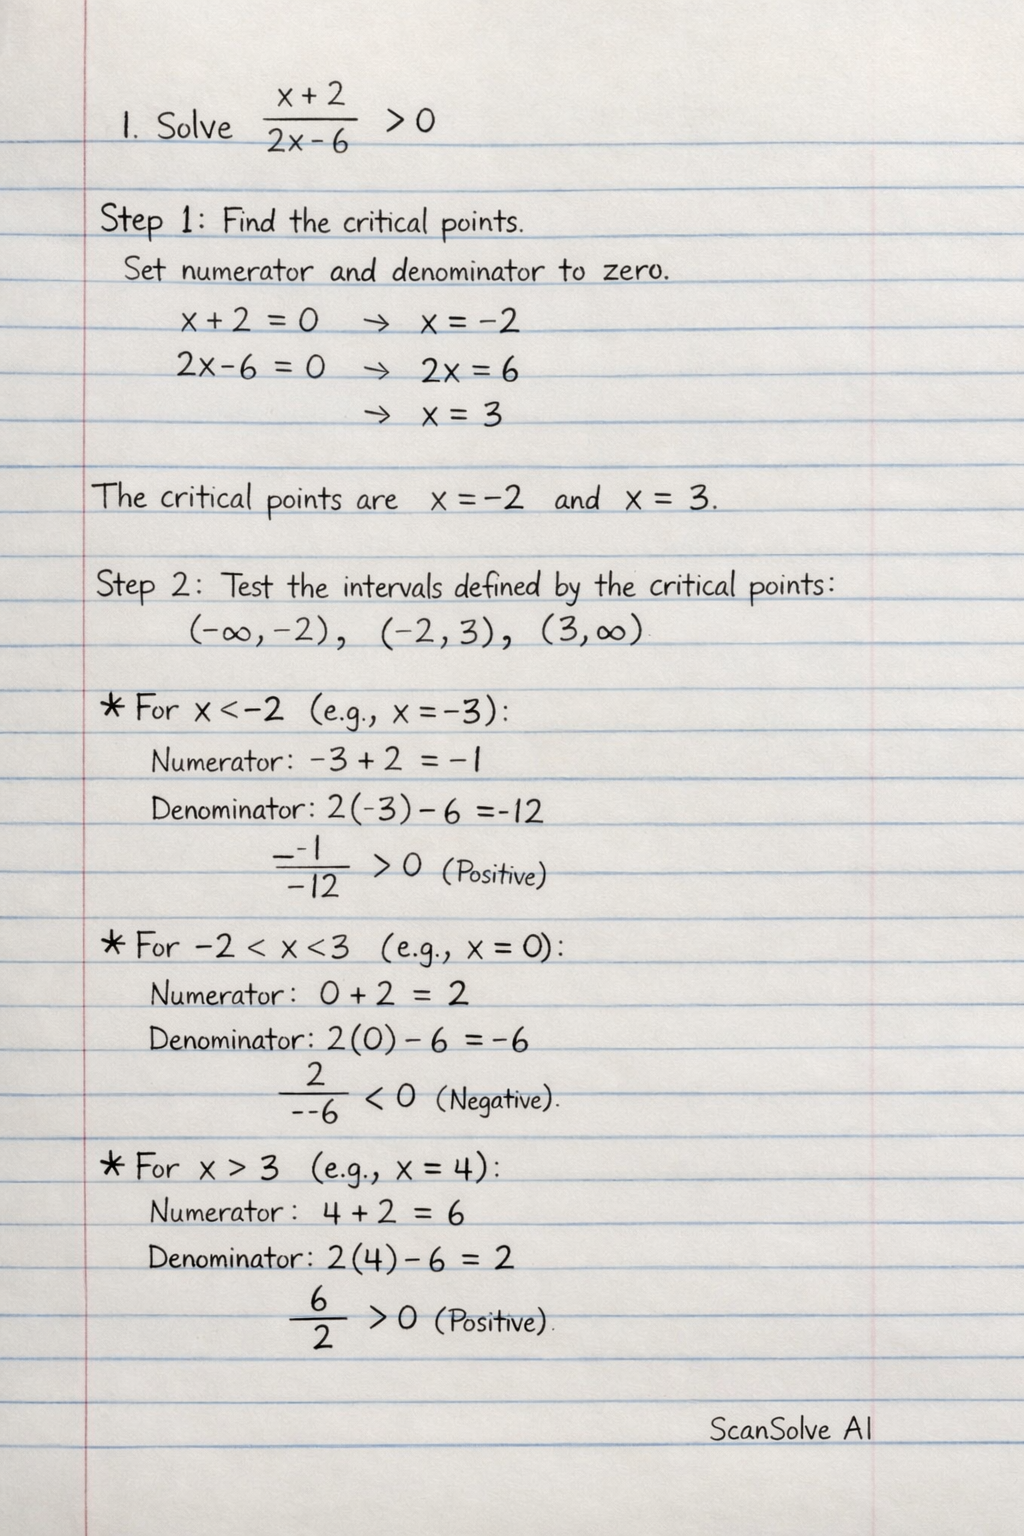 1. Solve (x + 2)/(2x - 6) > 0
Step 1: Find the critical points.
Set numerator and denominator to zero.
x + 2 = 0 → x = -2
2x - 6 = 0 → 2x = 6
→ x = 3
The critical points are x = -2 and x = 3.
Step 2: Test the intervals defined by the critical points:
(-∞, -2), (-2, 3), (3, ∞)
* For x < -2 (e.g., x = -3):
Numerator: -3 + 2 = -1
Denominator: 2(-3) - 6 = -12
-1/-12 > 0 (Positive)
* For -2 < x < 3 (e.g., x = 0):
Numerator: 0 + 2 = 2
Denominator: 2(0) - 6 = -6
2/--6 < 0 (Negative).
* For x > 3 (e.g., x = 4):
Numerator: 4 + 2 = 6
Denominator: 2(4) - 6 = 2
6/2 > 0 (Positive).
ScanSolve AI